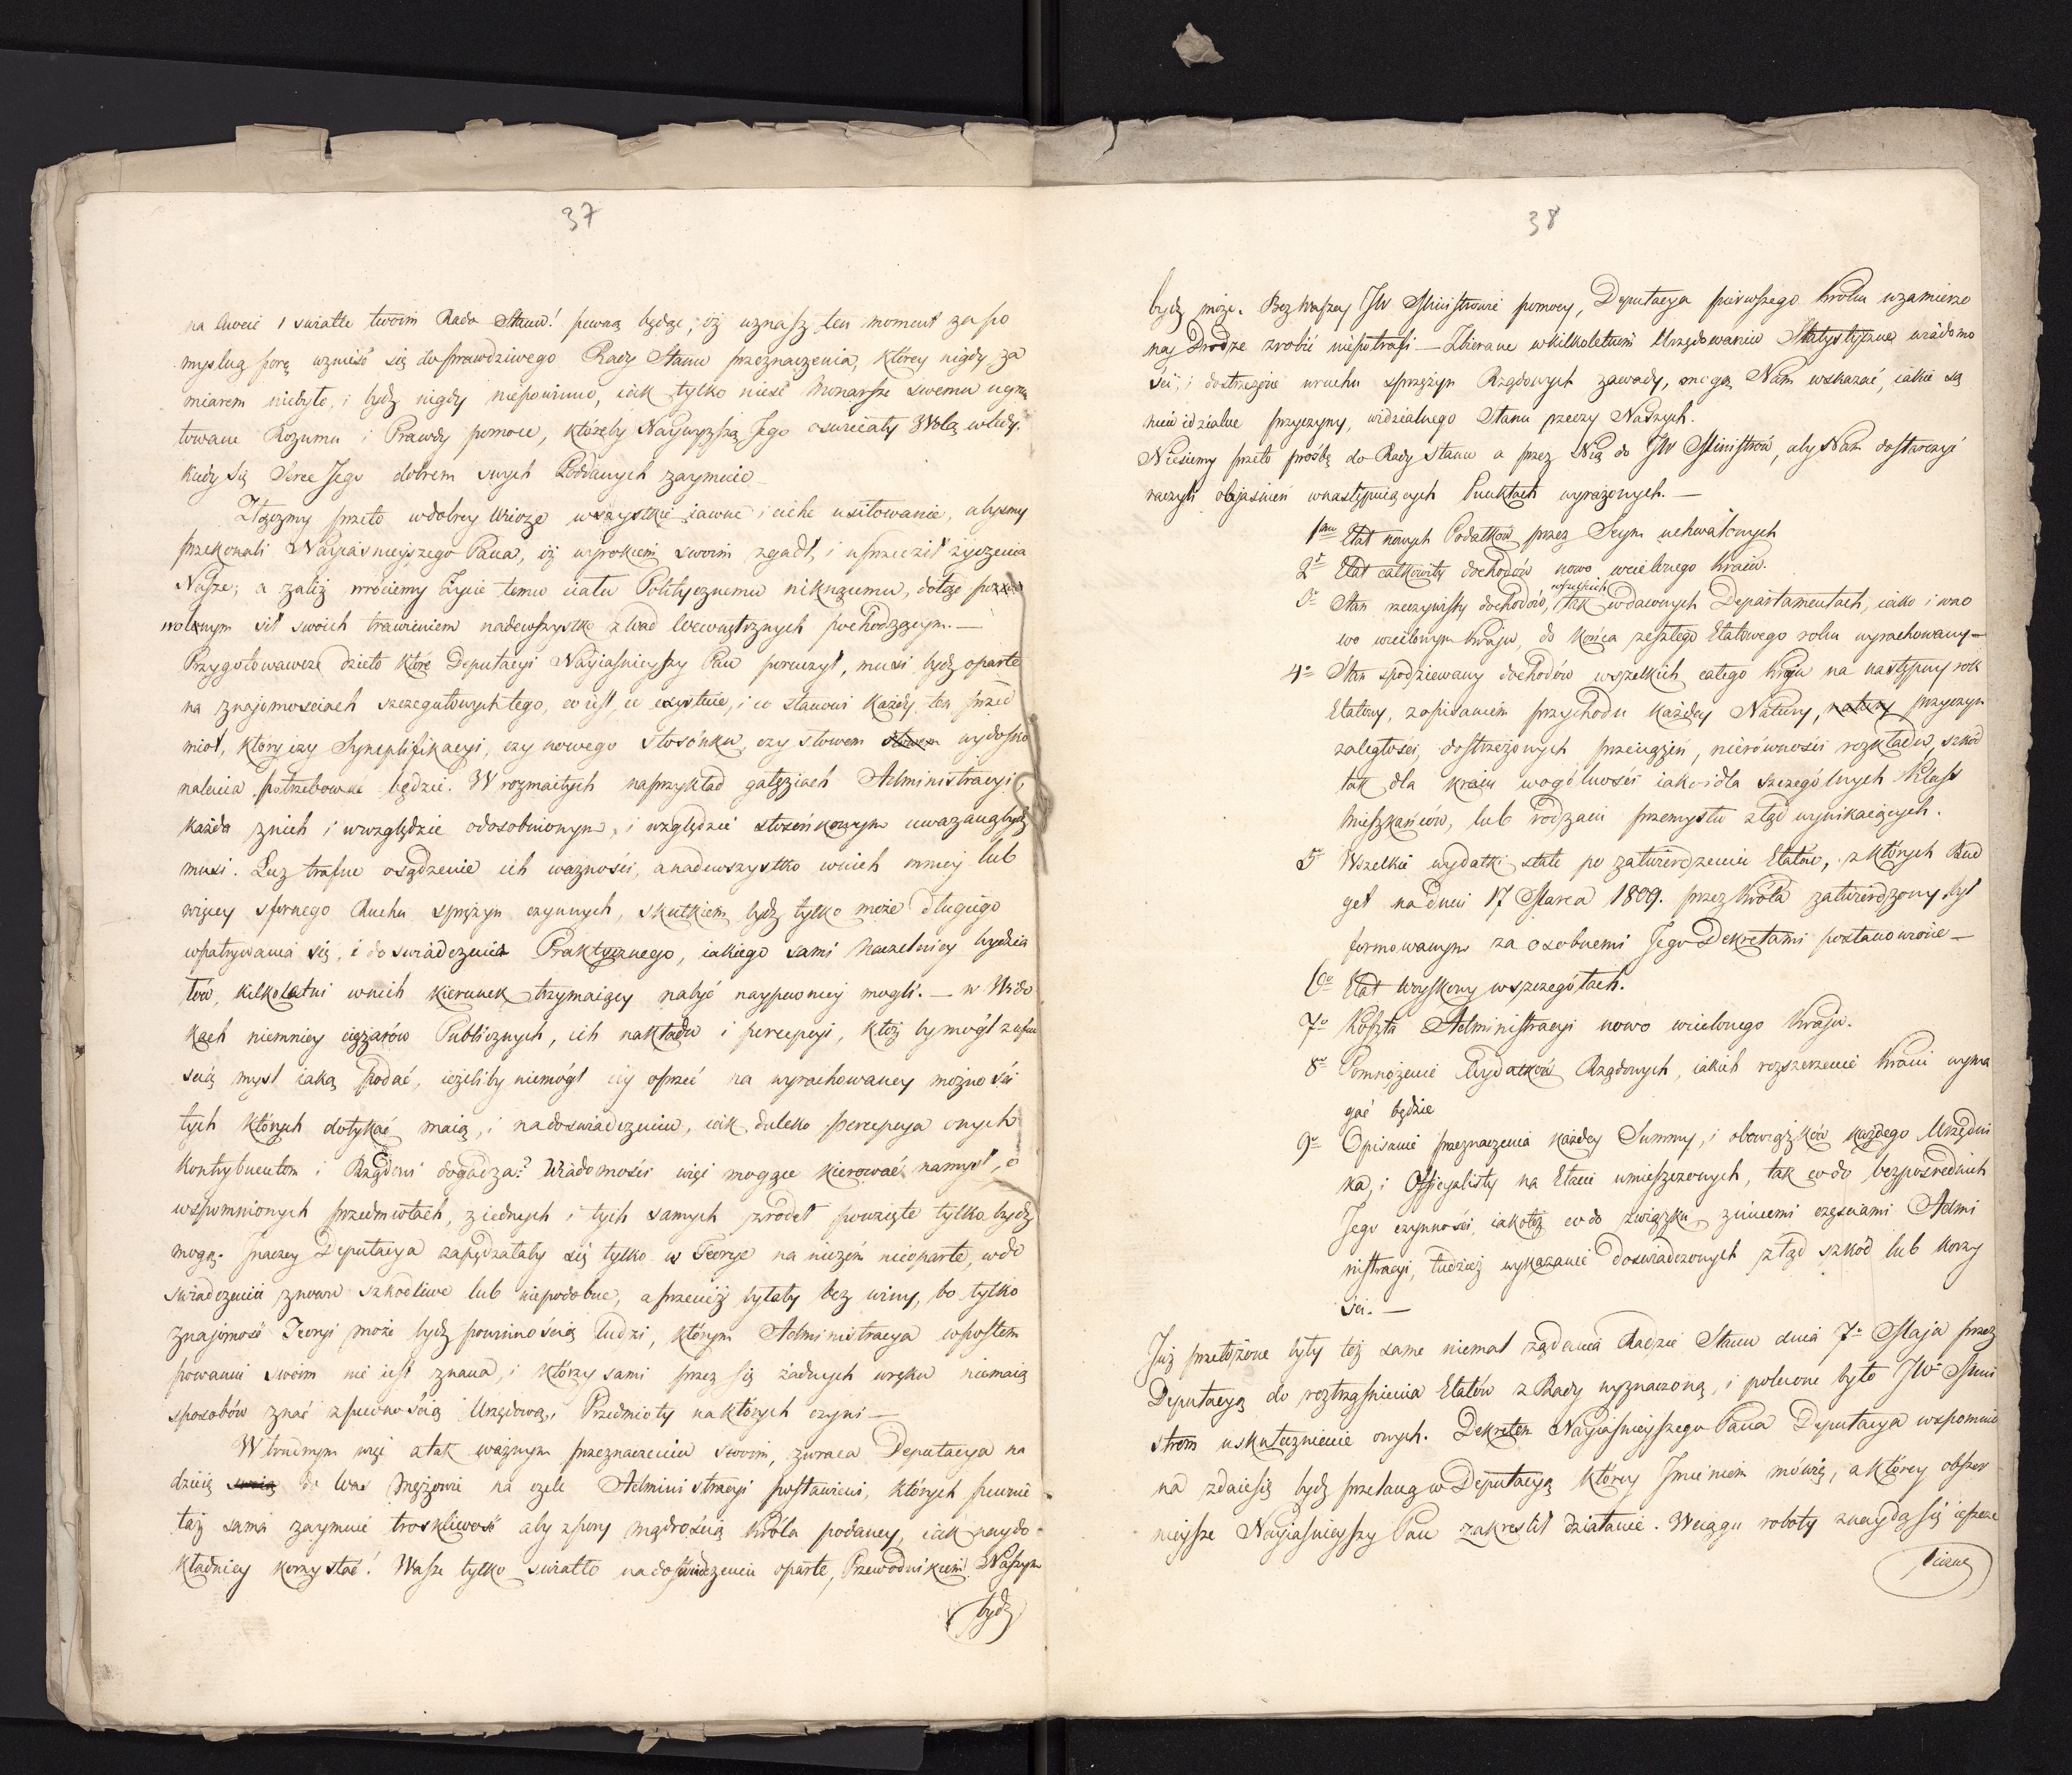 37
na Cnocie i swiatle twoim Rado Stanu! pewną będąc, iż uznasz ten moment za po
myslną porę wznieść się do prawdziwego Rady Stanu przeznaczenia, którey nigdy za
miarem niebyło, i bydź nigdy niepowinno, iak tylko nieść Monarsze swemu ugrun
towane Rozumu i Prawdy pomoce, któreby Naywyzszą Jego oswiecały Wolą wtedy.
kiedy się Serce Jego dobrem swych Poddanych zaymuie
Złączmy przeto wdobrey Wierze wszystkie iawne i ciche usiłowania, abysmy
przekonali Nayiasnieyszego Pana, iż wyrokiem swoim zgadł, i uprzedził życzenia
Nasze; a zaliż wrócimy Życie temu ciału Politycznemu niknącemu, dotąd pozwo
wolnym sił swoich trawieniem nadewszystko z Wad Wewnętrznych pochodzącym. —
Przygotowawcze dzieło które Deputacyi Nayiasnieyszy Pan poruczył, musi bydź oparte
na znajomosciach szczegułowych tego, co iest, co exystuie, i co stanowi każdy ten przed
miot, który czy Symplifikacyi, czy nowego stosónku, czy słowem słowem wydosko
nalenia potrzebować będzie. W rozmaitych naprzykład gałęziach Administracyi,
każda znich i wwzględzie odosobnionym, i względzie stosónkowym uwazaną bydź
musi. Lecz trafne osądzenie ich wazności, anadewszystko wnich mniey lub
więcey sfornego Ruchu sprężyn czynnych, skutkiem bydź tylko może długiego
wpatrywania się, i doswiadczenia Praktycznego, iakiego sami Naczelnicy Wydzia
łów, kilkolatni wnich kierunek trzymaiący nabyć naypewniey mogli. — w Wido
kach niemniey ciężarów Publicznych, ich nakładu i percepcyi, któż bymógł zufno
scią mysl iaką podać, ieżeliby niemógł iey oprzeć na wyrachowaney możności
tych których dotykać maią, i nadoswiadczeniu, iak daleko percepcya onych
Kontrybuentom i Rządowi dogadza? Wiadomości więc mogące kierować namysł, o
wspomnionych przedmiotach, ziednych i tych samych zrodeł powzięte tylko bydź
mogą. Inaczey Deputacya zapędzałaby się tylko w Teorye na niczém nieoparte, wdo
swiadczeniu znowu szkodliwe lub niepodobne, aprzecięż byłaby bez winy, bo tylko
znajómość Teoryi może bydź powinnością ludzi, którym Administracya wpostem
powaniu swoim nie iest znana, i którzy sami przez się żadnych wręku niemaią
sposobów znać zpewnością Urzędową, Przedmioty naktórych czyni —
W trudnym więc atak ważnym przeznaczeniu swoim, zwraca Deputacya na
dzieię swoią do Was Mężowie na czele Administracyi postawieni, których pewnie
taż sama zaymuie troskliwość aby zpory mądrością Króla podaney, iak naydo
kładniey korzystać! Wasze tylko swiatło nadoswiadczeniu oparte, Przewodnikiem Naszym
bydź
38
bydź może. Bez Waszey JW Ministrowie pomocy, Deputacya pierwszego kroku wzamierzo
ney Drodze zrobić niepotrafi — Zbierane wkilkoletnim Urzędowaniu Statystyczne wiádomo
ści, i dostrzeżone wruchu sprężyn Rządowych zawady, mogą Nam wskazać, iakie są
niewidzialne przyczyny, widzialnego Stanu rzeczy Naszych.
Niesiemy przeto prośbę do Rady Stanu a przez Nią do JW Ministrów, aby Nam dostarczyć
raczyli objasnień wnastępuiących Punktach wyrażonych. —
1mo Etat nowych Podatków przez Seym uchwalonych
2o Etat całkowity dochodów nowo wcielonego Kraiu.
wszelkich
3o Stan rzeczywisty dochodów, tak wdawnych Departamentach, iako i wno
wo wcielonym Kraju, do Końca zeszłego Etatowego roku wyrachowany —
4o Stan spodziewany dochodów wszelkich całego Kraju na następny rok
Etatowy, zopisaniem przychodu każdey Natury, natury przyczyn
zaległości, dostrzeżonych przeciążeń, nierówności rozkładu, szkód
tak dla kraiu wogólności iako i dla szczególnych Klass
Mieszkańców, lub rodzaiu przemysłu ztąd wynikaiących.
5o Wszelkie wydatki stałe po zatwierdzeniu Etatów, z których Bud
get nadniu 17 Marca 1809. przez Króla zatwierdzony był
formowanym za osobnemi Jego Dekretami postanowione —
6o Etat Woyskowy wszczegółach.
7o Koszta Administracyi nowo wcielonego Kraju.
8o Pomnożenie Wydatków Rządowych, iakich rozszerzenie Kraiu wyma
gać będzie
9o Opisanie przeznaczenia każdey Summy, i obowiązków każdego Urzędni
ka, i Officyalisty na Etacie umieszczonych, tak codo bezposrednich
Jego czynności, iakotéż codo związku zinnemi częsciami Admi
nistracyi, tudzież wykazanie doświadczonych ztąd szkód lub korzy
ści. —
Już przełożone były też same niemal żądania Radzie Stanu dnia 7o Maja przez
Deputacyą do roztrząśnienia Etatów z Rady wyznaczoną, i polecone było JW Mini
strom uskutecznienie onych. Dekretem Nayiasnieyszego Pana Deputacya wspomnio
na zdaiesię bydź przelaną w Deputacyą którey Jmieniem mówię, a którey obszer
nieysze Nayiasnieyszy Pan zakreslił działanie. Wciągu roboty znaydą się ieszcze